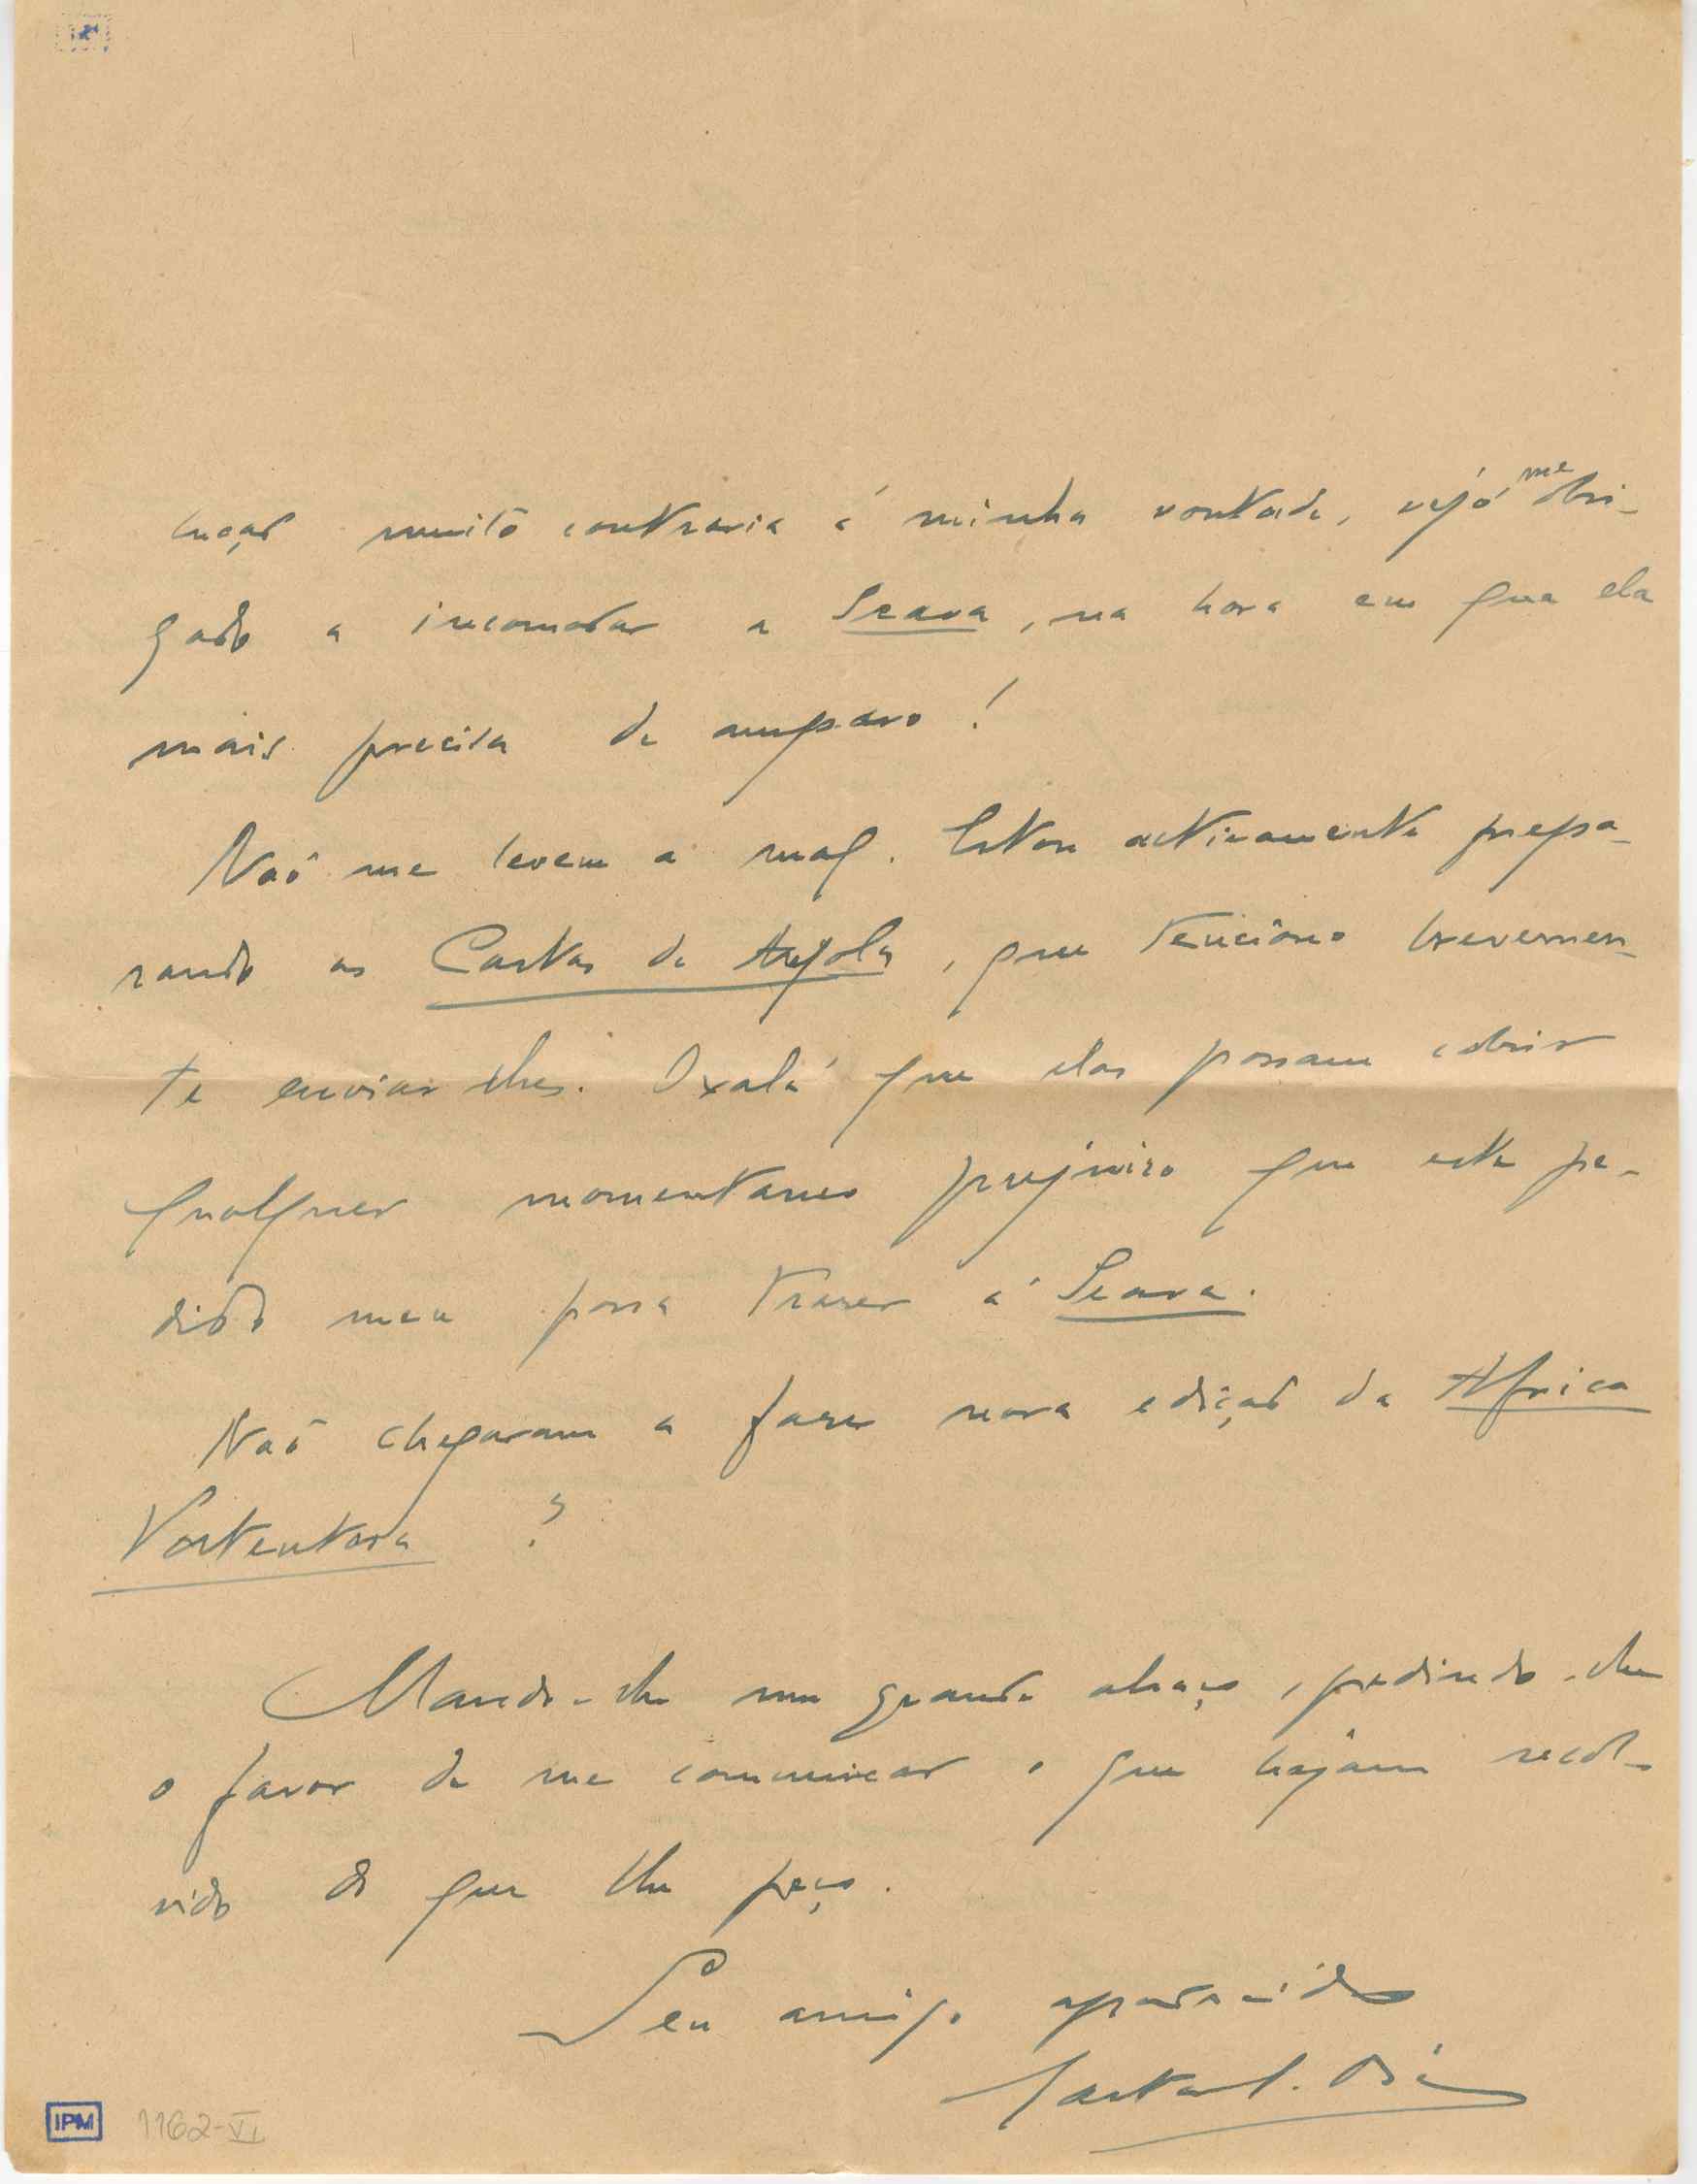 lução muito contraria á minha vontade, vejo me obri-
gado a incomodar a Seara, na hora em que ela
mais precisa de amparo!
Não me levem a mal. Estou activamente prepa-
rando as Cartas de Angola, que tenciono brevemen-
te enviar-lhes. Oxalá que elas possam cobrir
qualquer momentaneo prejuizo que este pe-
dido meu possa trazer á Seara.
Não chegaram a fazer nova edição da Africa
Portentosa?
Mando-lhe um grande abraço, pedindo-lhe
o favor de me communicar o que hajam resol-
vido do que lhe peço.
Seu amigo agradecido
Gastão S. Dias
IPM 1162-VI